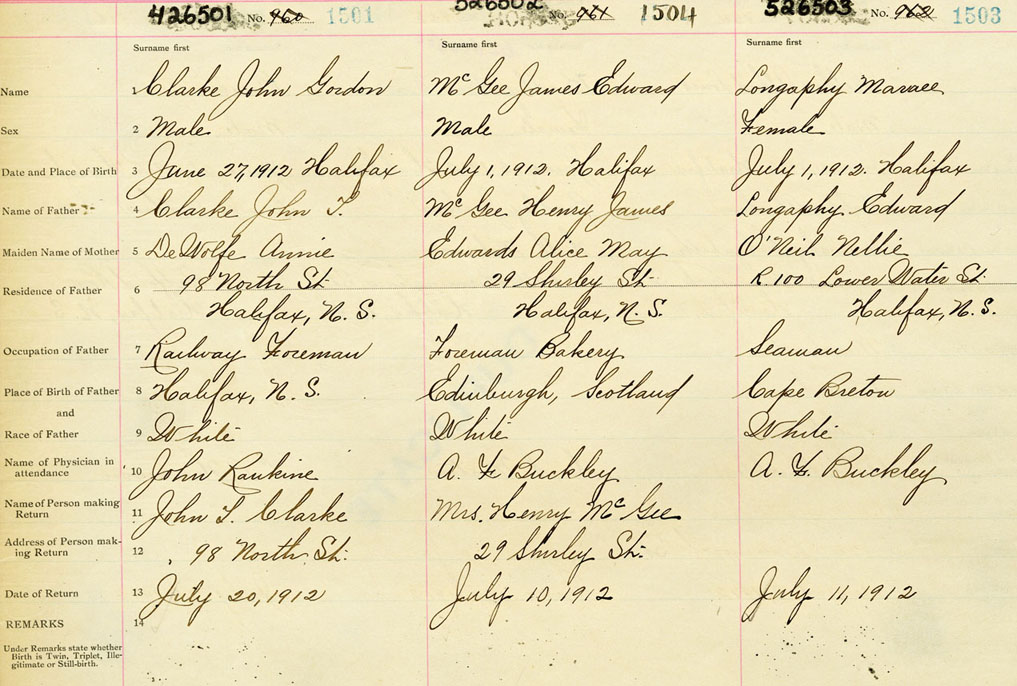 426501 No. 960 1501 526502 No. 961 1504 526503 No. 962 1503
Surname first Surname first Surname first
Name 1 Clarke John Gordon McGee James Edward Longaphy
Sex 2 Male Male Female
Date and Place of Birth 3 June 27, 1912 Halifax July 1, 1912. Halifax July 1, 1912. Halifax
Name of Father 4 Clarke John T. McGee Henry James Longaphy Edward
Maiden Name of Mother 5 DeWolfe Annie Edwards Alice May O'Neil Nellie
Residence of Father 6 98 North St. 29 Shirley St. R 100 Lower Water St.
Halifax, N. S. Halifax, N. S. Halifax, N. S.
Occupation of Father 7 Railway Foreman Foreman Bakery Seaman
Place of Birth of Father 8 Halifax, N. S. Edinburgh, Scotland Cape Breton
and
Race of Father 9 White White White
Name of Physician in
attendance 10 John Rankine A. F. Buckley A. F. Buckley
Name of Person making
Return 11 John T. Clarke Mrs. Henry McGee
Address of Person mak-
ing Return 12 98 North St. 29 Shirley St.
Date of Return 13 July 20, 1912 July 10, 1912 July 11, 1912
REMARKS 14
Under Remarks state whether
Birth is Twin, Triplet, Ille-
gitimate or Still-birth.